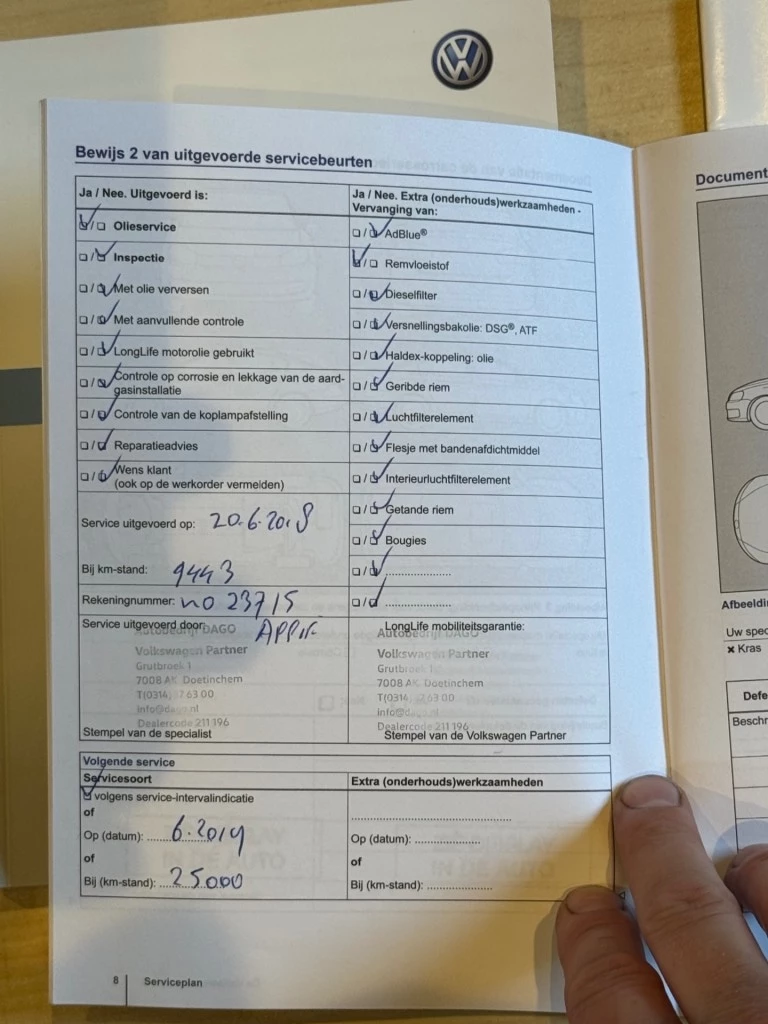 Bewijs 2 van uitgevoerde servicebeurten
Ja / Nee. Uitgevoerd is:
Olieservice
Inspectie
Met olie verversen
Met aanvullende controle
LongLife motorolie gebruikt
Controle op corrosie en lekkage van de aard-
gasinstallatie
Controle van de koplampafstelling
Reparatieadvies
Wens klant
(ook op de werkorder vermelden)
Service uitgevoerd op: 20.6.2018
Bij km-stand: 9443
Rekeningnummer: no 23715
Service uitgevoerd door:
Autobedrijf DAGO
Volkswagen Partner
Grutbroek 1
7008 AK Doetinchem
T(0314) 63 00
info@dago.nl
Dealercode 211196
Stempel van de specialist
Ja / Nee. Extra (onderhouds)werkzaamheden -
Vervanging van:
AdBlue®
Remvloeistof
Dieselfilter
Versnellingsbakolie: DSG®, ATF
Haldex-koppeling: olie
Geribde riem
Luchtfilterelement
Flesje met bandenafdichtmiddel
Interieurluchtfilterelement
Getande riem
Bougies
LongLife mobiliteitsgarantie:
Autobedrijf DAGO
Volkswagen Partner
Grutbroek 1
7008 AK Doetinchem
T(0314) 63 00
info@dago.nl
Dealercode 211196
Stempel van de Volkswagen Partner
Volgende service
Servicesoort
volgens service-intervalindicatie
of
Op (datum): 6.2019
of
Bij (km-stand): 25000
Extra (onderhouds)werkzaamheden
Op (datum):
of
Bij (km-stand):
8 Serviceplan
Document
Afbeeldi
Uw spec
× Kras
Defe
Beschr